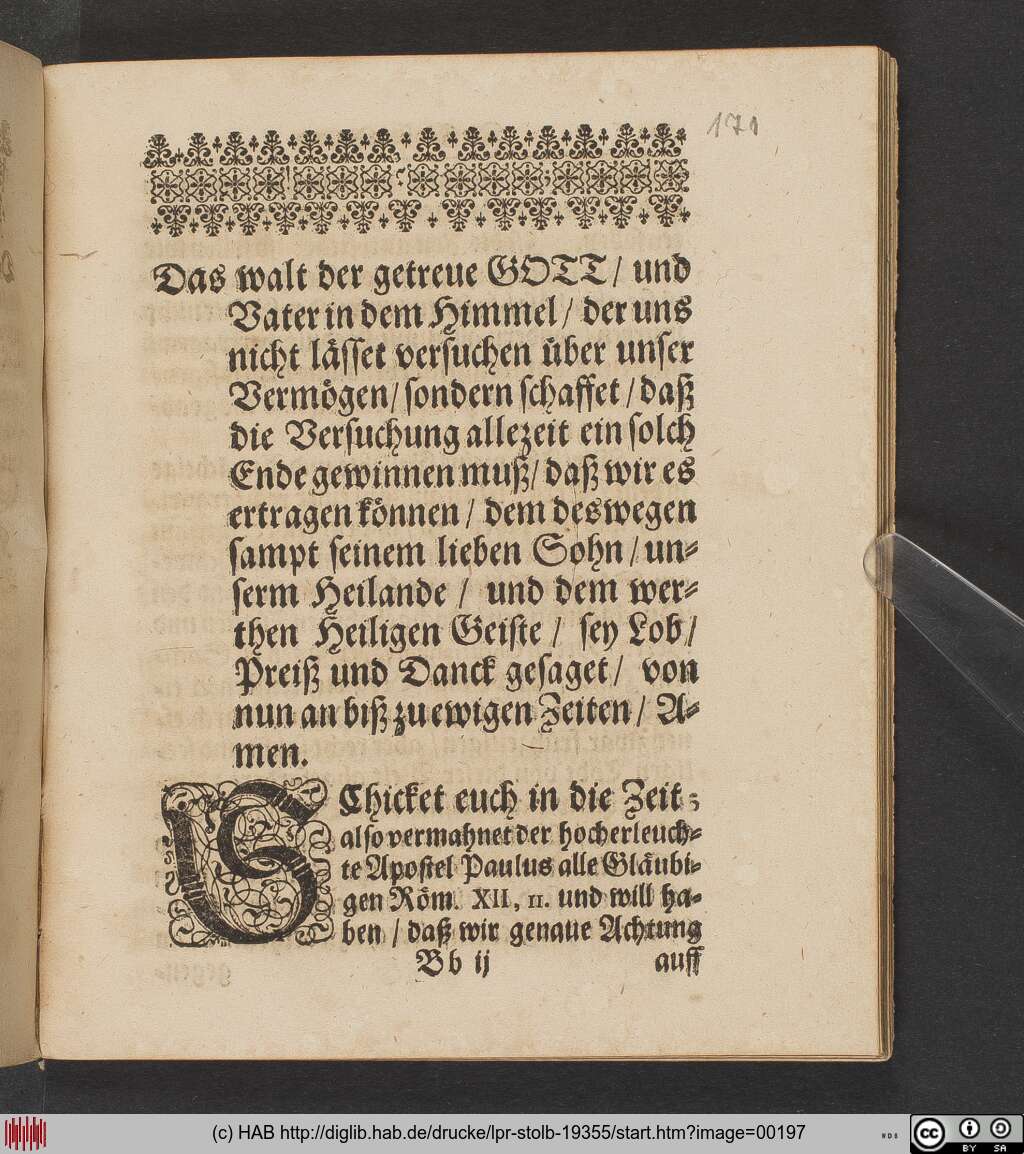 171
Das walt der getreue GOTT / und
Vater in dem Himmel / der uns
nicht lässet versuchen über unser
Vermögen / sondern schaffet / daß
die Versuchung allezeit ein solch
Ende gewinnen muß / daß wir es
ertragen können / dem deswegen
sampt seinem lieben Sohn / un-
serm Heilande / und dem wer-
then Heiligen Geiste / sey Lob /
Preiß und Danck gesaget / von
nun an biß zu ewigen Zeiten / A-
men.
SChicket euch in die Zeit;
also vermahnet der hocherleuch-
te Apostel Paulus alle Gläubi-
gen Röm. XII, 11. und will ha-
ben / daß wir genaue Achtung
Bb ij auff
(c) HAB http://diglib.hab.de/drucke/lpr-stolb-19355/start.htm?image=00197
cc BY SA